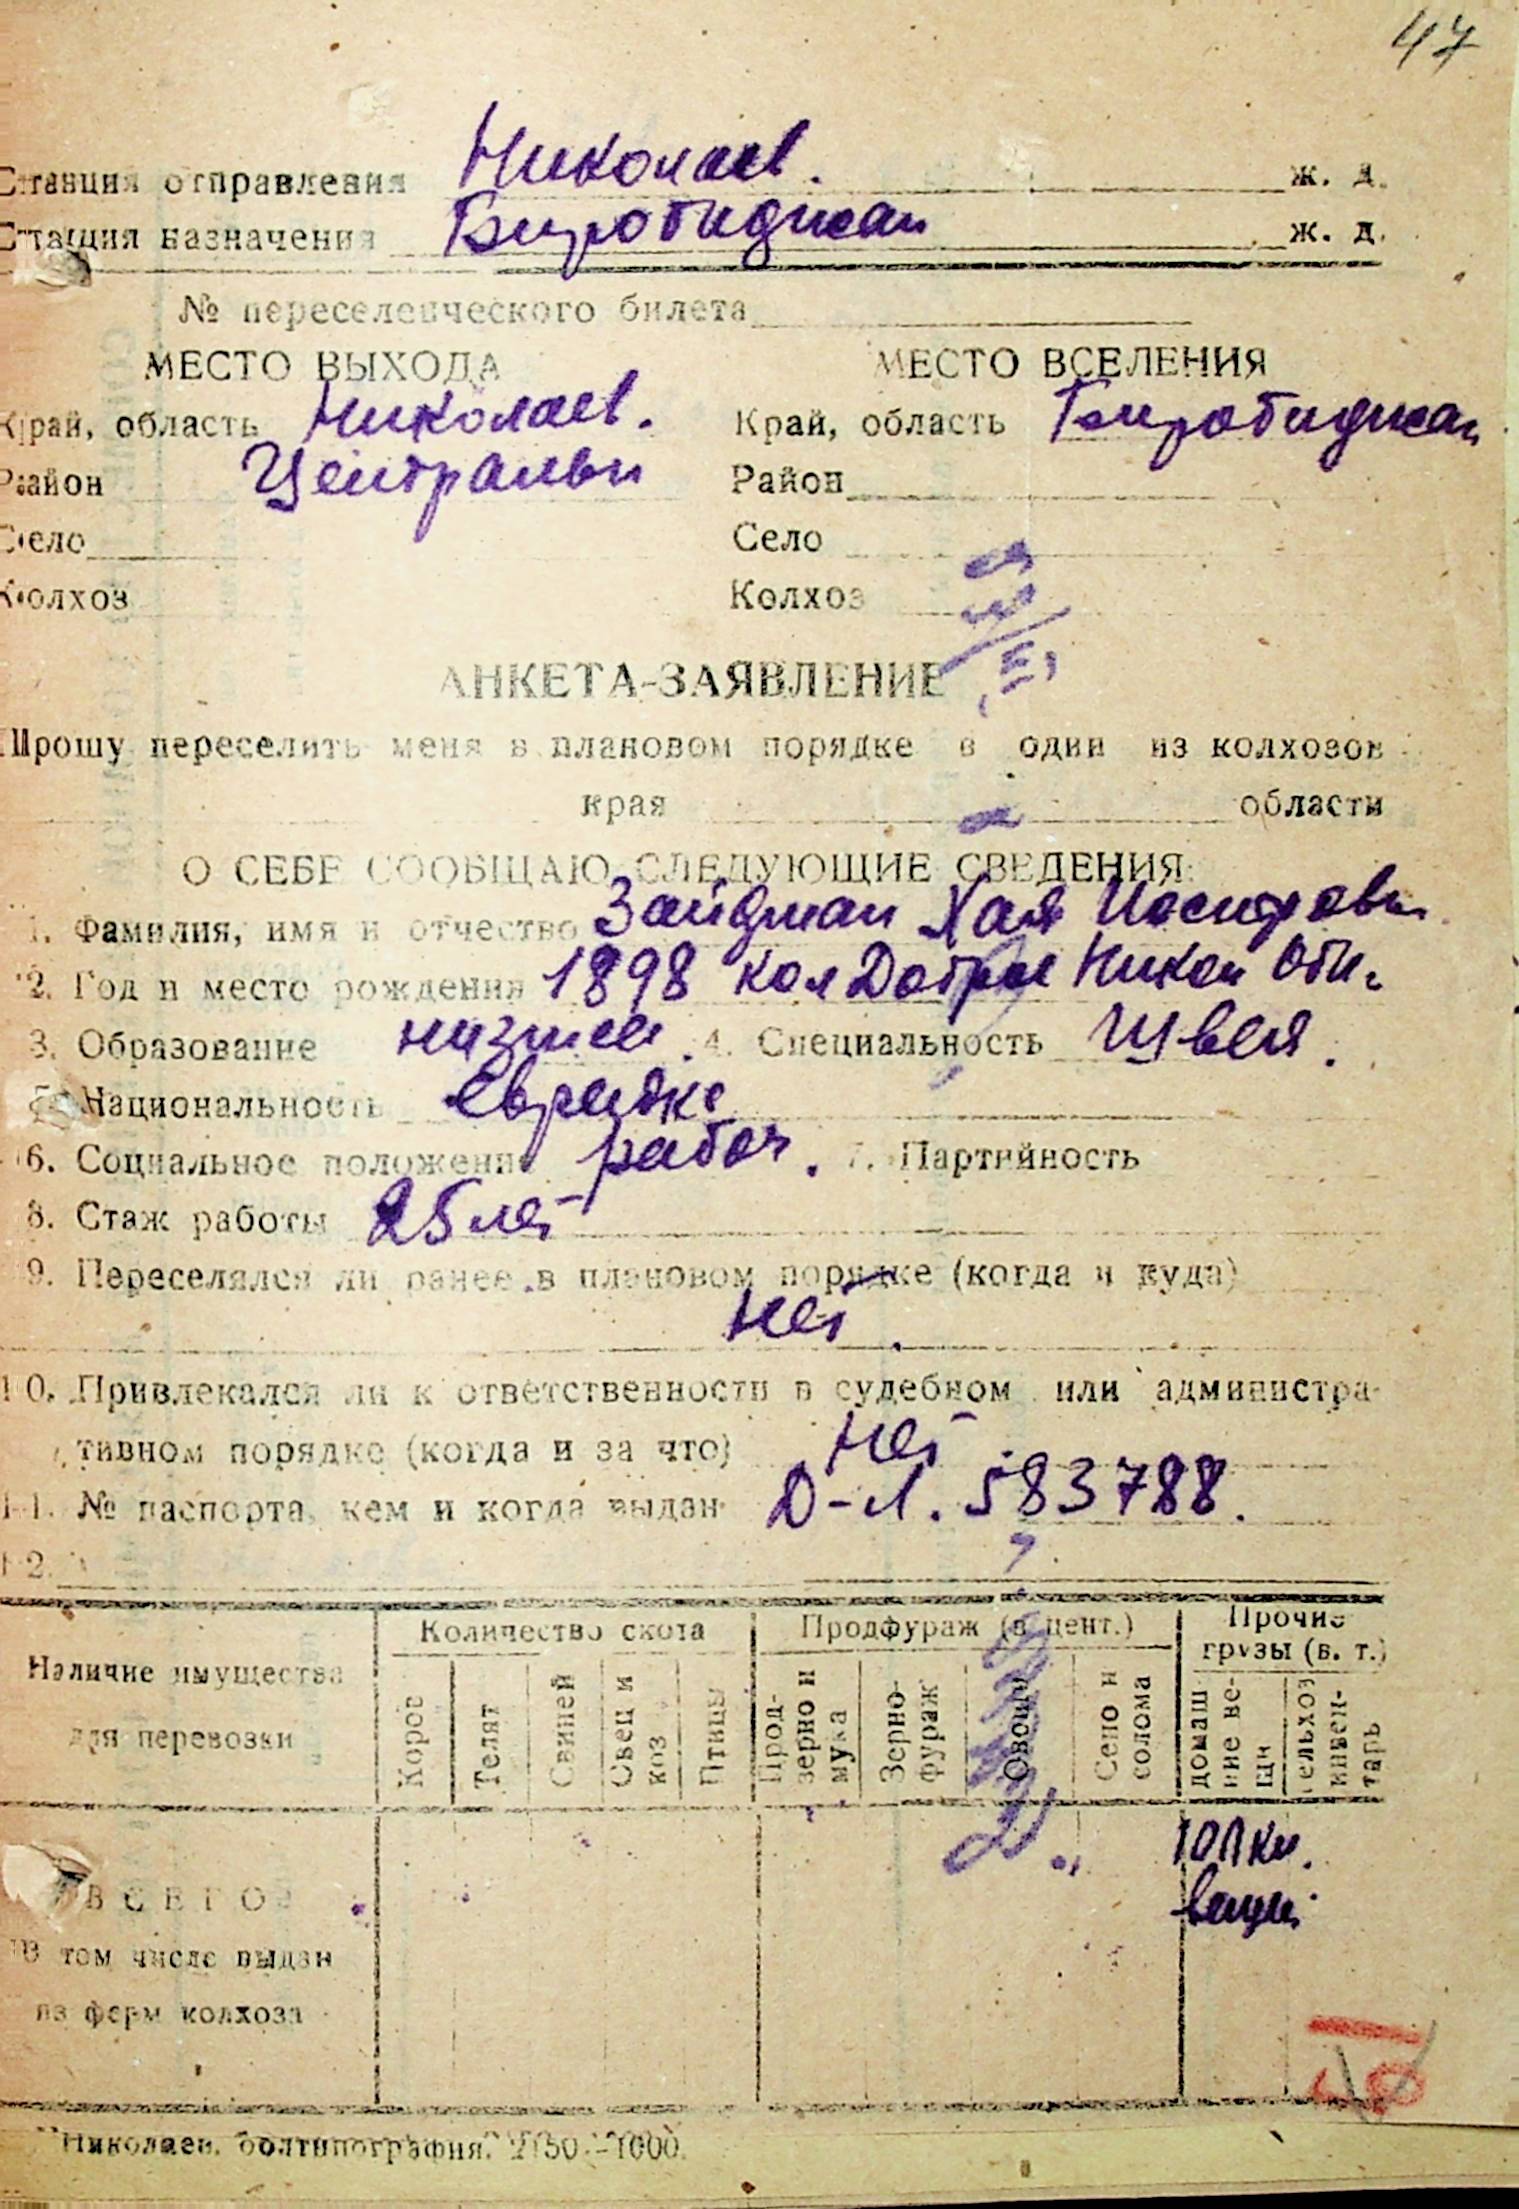 47
Станция отправления Николаев. ж. д.
Станция назначения Биробиджан ж. д.
№ переселенческого билета
МЕСТО ВЫХОДА МЕСТО ВСЕЛЕНИЯ
Край, область Николаев. Край, область Биробиджан
Район Центральн Район
Село Село
Колхоз Колхоз
АНКЕТА-ЗАЯВЛЕНИЕ
Прошу переселить меня в плановом порядке в один из колхозов
края области
О СЕБЕ СООБЩАЮ СЛЕДУЮЩИЕ СВЕДЕНИЯ:
1. Фамилия, имя и отчество Зайдман Хая Иосифовн
2. Год и место рождения 1898 кол Доброе Никол обл.
3. Образование низшее. 4. Специальность Швея.
5. Национальность еврейка
6. Социальное положение рабоч. 7. Партийность
8. Стаж работы 25 лет
9. Переселялся ли ранее в плановом порядке (когда и куда)
Нет.
10. Привлекался ли к ответственности в судебном или администра-
тивном порядке (когда и за что) Нет
11. № паспорта, кем и когда выдан 583788.
12.
Наличие имущества для перевозки
Количество скота Продфураж (в цент.) Прочие грузы (в. т.)
Коров Телят Свиней Овец и коз Птицы Прод-зерно и мука Зерно-фураж Овощи Сено и солома домашние вещи сельхоз инвен-тарь
ВСЕГО
вещей
В том числе выдан
из ферм колхоза
Николаев. болтипография. 2150—1000.